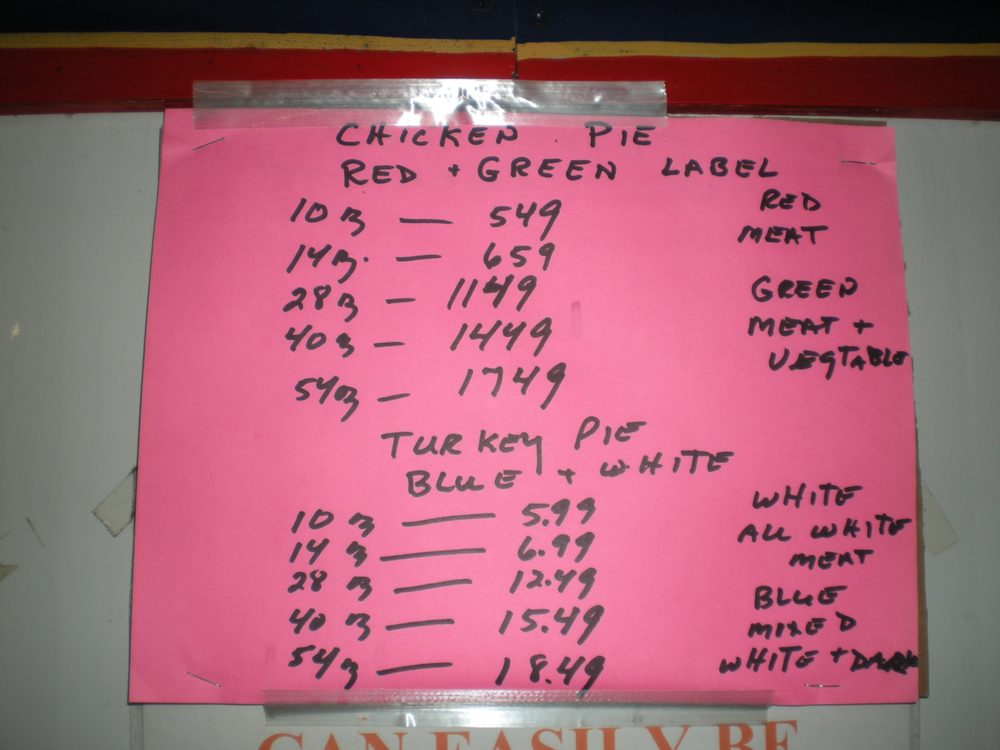 CHICKEN . PIE
RED + GREEN LABEL
10 oz — 549
14 oz. — 659
28 oz — 1149
40 oz — 1449
54 oz — 1749
RED
MEAT
GREEN
MEAT +
VEGTABLE
TURKEY PIE
BLUE + WHITE
10 oz — 5.99
14 oz — 6.99
28 oz — 12.49
40 oz — 15.49
54 oz — 18.49
WHITE
ALL WHITE
MEAT
BLUE
MIXED
WHITE + DARK
CAN EASILY BE